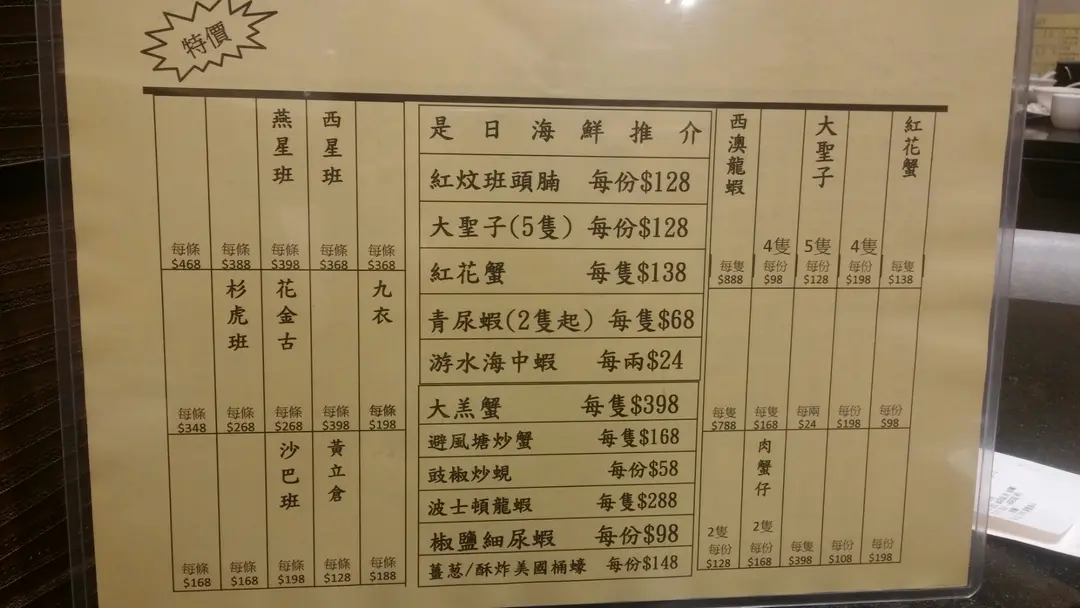 特價
燕星班
西星班
每條 每條 每條 每條 每條
$468 $388 $398 $368 $368
杉虎班
花金古
九衣
每條 每條 每條 每條 每條
$348 $268 $268 $398 $198
沙巴班
黃立倉
每條 每條 每條 每條 每條
$168 $168 $198 $128 $188
是日海鮮推介
紅炆班頭腩 每份$128
大聖子(5隻) 每份$128
紅花蟹 每隻$138
青尿蝦(2隻起) 每隻$68
游水海中蝦 每兩$24
大羔蟹 每隻$398
避風塘炒蟹 每隻$168
豉椒炒蜆 每份$58
波士頓龍蝦 每隻$288
椒鹽細尿蝦 每份$98
薑葱/酥炸美國桶蠔 每份$148
西澳龍蝦
大聖子
紅花蟹
4隻 5隻 4隻
每隻 每份 每份 每份 每隻
$888 $98 $128 $198 $138
每隻 每隻 每兩 每份 每份
$788 $168 $24 $198 $98
肉蟹仔
2隻 2隻
每份 每份 每隻 每份 每份
$128 $168 $398 $108 $198